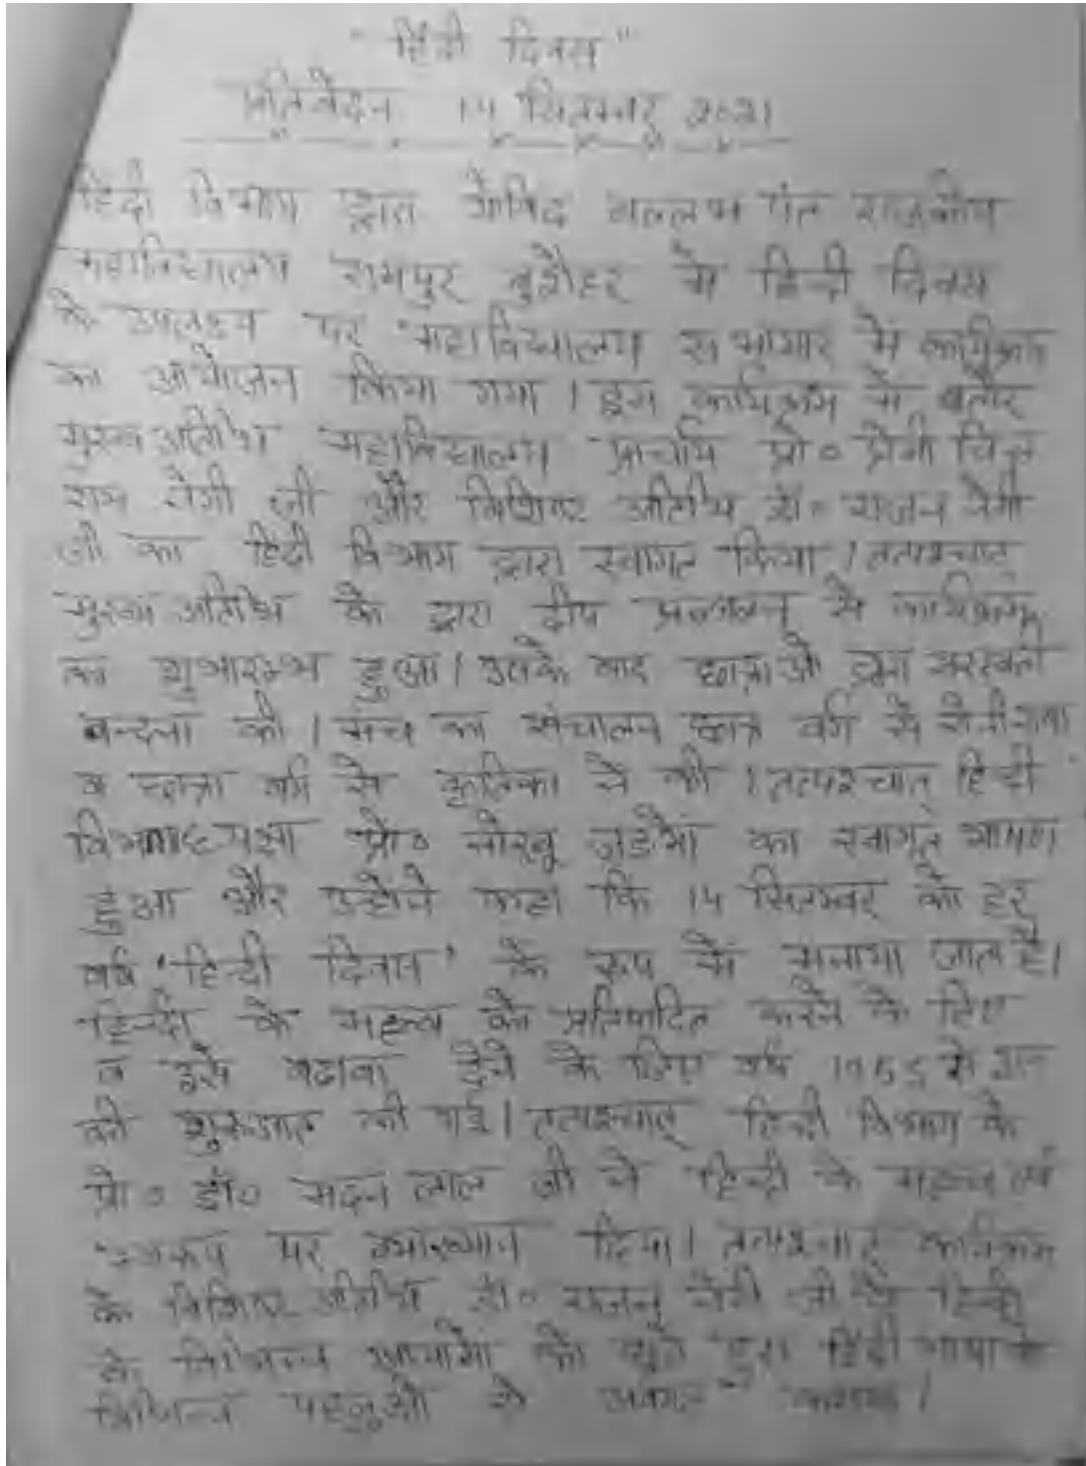 "हिंदी दिवस"
प्रतिवेदन 14 सितम्बर 2021
हिंदी विभाग द्वारा गोविंद वल्लभ पंत राजकीय
महाविद्यालय रामपुर बुशैहर में हिन्दी दिवस
के उपलक्ष्य पर महाविद्यालय सभागार में कार्यक्रम
का आयोजन किया गया। इस कार्यक्रम में बतौर
मुख्य अतिथि महाविद्यालय प्राचार्य प्रो०
राम नेगी जी और विशिष्ट अतिथि डॉ० राजन नेगी
जी का हिंदी विभाग द्वारा स्वागत किया। तत्पश्चात्
मुख्य अतिथि के द्वारा दीप प्रज्जवलन से कार्यक्रम
का शुभारम्भ हुआ। उसके बाद छात्राओं द्वारा सरस्वती
वन्दना की। मंच का संचालन छात्र वर्ग से
व छात्रा वर्ग से कृतिका ने की। तत्पश्चात् हिन्दी
विभागाध्यक्षा प्रो० का स्वागत भाषण
हुआ और उन्होंने कहा कि 14 सितम्बर को हर
वर्ष 'हिन्दी दिवस' के रूप में मनाया जाता है।
हिन्दी के महत्व को प्रतिपादित करने के लिए
व इसे बढावा देने के लिए वर्ष से इस
की शुरुआत की गई। तत्पश्चात् हिन्दी विभाग के
प्रो० डॉ० मदन लाल जी ने हिन्दी के महत्व एवं
स्वरूप पर व्याख्यान दिया। तत्पश्चात् कार्यक्रम
के विशिष्ट अतिथि डॉ० राजन नेगी जी ने हिन्दी
के विभिन्न आयामों को छूते हुए हिंदी भाषा के
विभिन्न पहलुओं से अवगत करवाया।